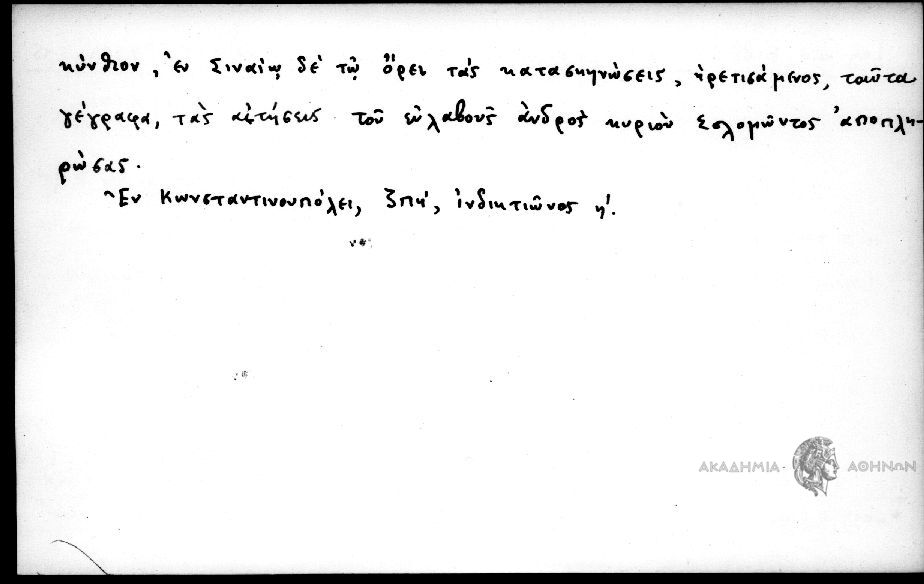 κύνθιον, ἐν Σιναίῳ δὲ τῷ ὄρει τὰς κατασκηνώσεις, ᾑρετισάμενος, ταῦτα
γέγραφα, τὰς αἰτήσεις τοῦ εὐλαβοῦς ἀνδρὸς κυρίου Σολομῶντος ἀποπλη-
ρώσας.
Ἐν Κωνσταντινουπόλει, ζπη', ἰνδικτιῶνος η'.
ΑΚΑΔΗΜΙΑ ΑΘΗΝΩΝ